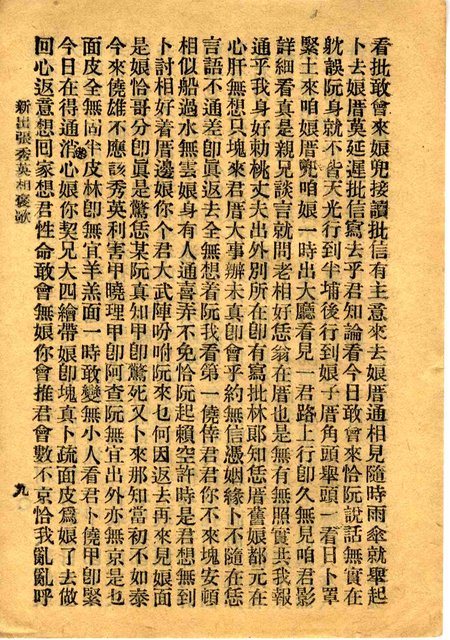 看批敢會來娘兜接讀批信有主意來去娘厝通相見隨時雨傘就舉起
卜去娘厝莫延遲批信寫去乎君知論看今日敢會來恰阮說話無實在
躭誤阮身就不皆天光行到半埔後行到娘子厝角頭舉頭一看日卜罩
緊土來咱娘厝兜咱娘一時出大廳看見一君路上行卽久無見咱君影
詳細看真是親兄談言就問老相好恁翁在厝也是無有無照實共我報
通乎我身好勅桃丈夫出外別所在卽有寫批林郎知恁厝舊娘都元在
心肝無想只塊來君厝大事辦未真卽會乎約無信憑姻緣卜不隨在恁
言語不通差卽真返去全無想着阮我看第一僥倖君君你不來塊安頓
相似船過水無雲娘身有人通喜弄不免恰阮起賴空許時是君想無到
卜討相好着厝邊娘你个君大武陣吩咐阮來乜何因返去再來見娘面
是娘恰哥分卽眞是驚恁某阮真知甲卽驚死又卜來那知當初不如泰
今來僥雄不應該秀英利害甲曉理甲卽阿查阮無宜出外亦無京是乜
面皮全無尚半皮林卽無宜羊羔面一時敢變無小人看君卜僥甲卽緊
今日在得通消心娘你契兄大四繪帶娘卽塊真卜疏面皮爲娘了去做
回心返意想回家想君性命敢會無娘你會推君會數不京恰我亂亂呼
新出張秀英相褒歌
九